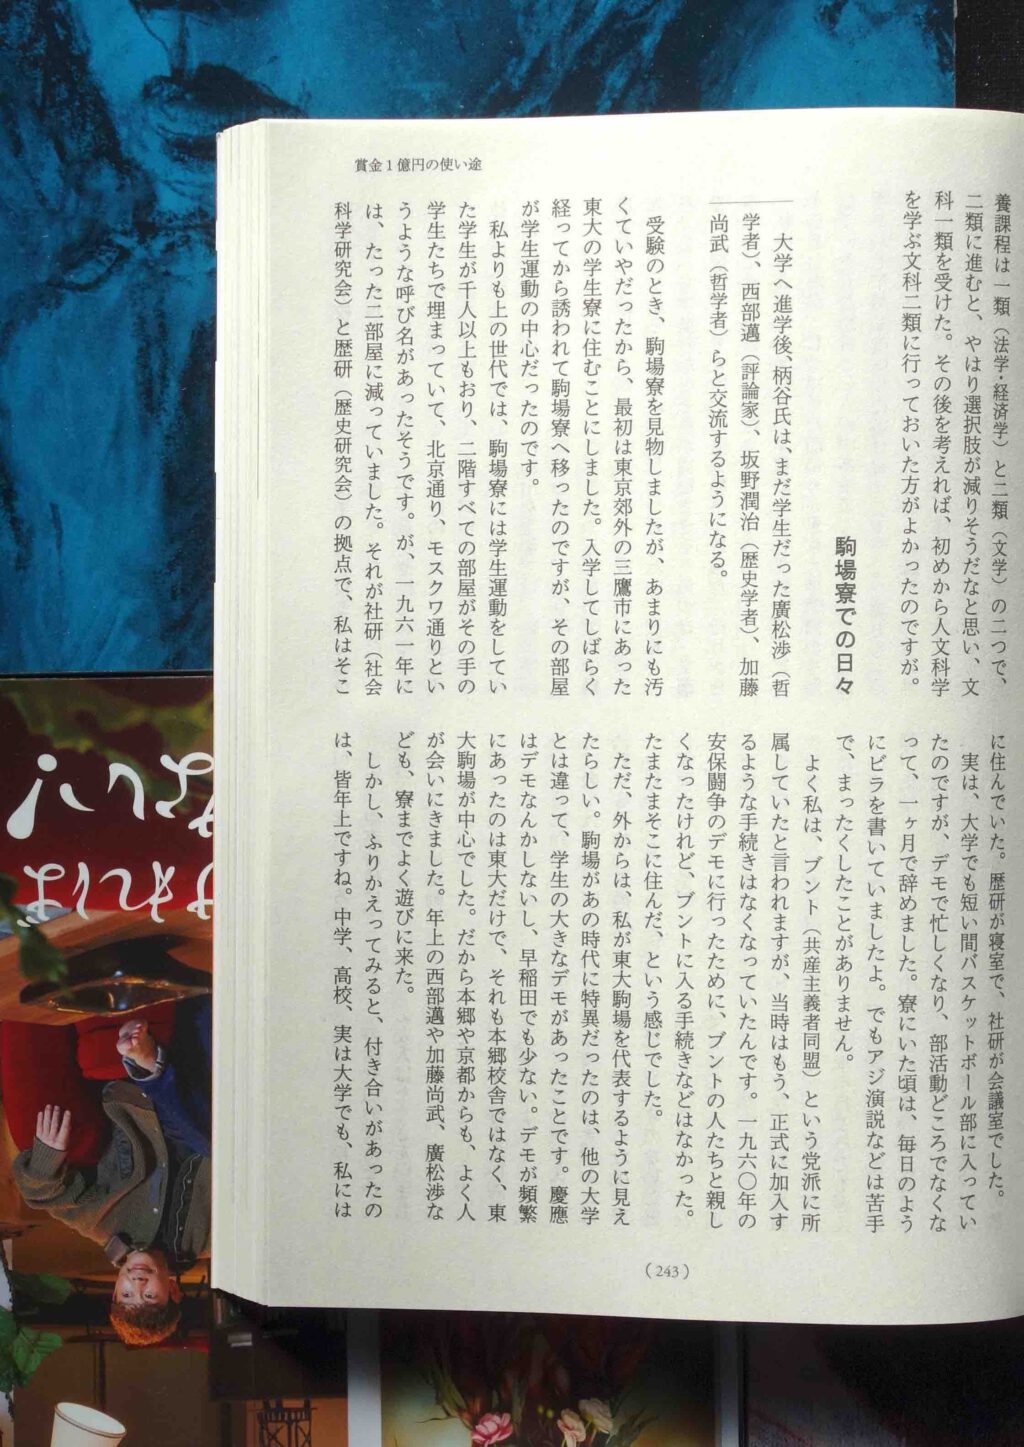 賞金1億円の使い途
養課程は一類（法学・経済学）と二類（文学）の二つで、
二類に進むと、やはり選択肢が減りそうだなと思い、文
科一類を受けた。その後を考えれば、初めから人文科学
を学ぶ文科二類に行っておいた方がよかったのですが。
駒場寮での日々
大学へ進学後、柄谷氏は、まだ学生だった廣松渉（哲
学者）、西部邁（評論家）、坂野潤治（歴史学者）、加藤
尚武（哲学者）らと交流するようになる。
受験のとき、駒場寮を見物しましたが、あまりにも汚
くていやだったから、最初は東京郊外の三鷹市にあった
東大の学生寮に住むことにしました。入学してしばらく
経ってから誘われて駒場寮へ移ったのですが、その部屋
が学生運動の中心だったのです。
私よりも上の世代では、駒場寮には学生運動をしてい
た学生が千人以上もおり、二階すべての部屋がその手の
学生たちで埋まっていて、北京通り、モスクワ通りとい
うような呼び名があったそうです。が、一九六一年に
は、たった二部屋に減っていました。それが社研（社会
科学研究会）と歴研（歴史研究会）の拠点で、私はそこ
に住んでいた。歴研が寝室で、社研が会議室でした。
実は、大学でも短い間バスケットボール部に入ってい
たのですが、デモで忙しくなり、部活動どころでなくな
って、一ヶ月で辞めました。寮にいた頃は、毎日のよう
にビラを書いていましたよ。でもアジ演説などは苦手
で、まったくしたことがありません。
よく私は、ブント（共産主義者同盟）という党派に所
属していたと言われますが、当時はもう、正式に加入す
るような手続きはなくなっていたんです。一九六〇年の
安保闘争のデモに行ったために、ブントの人たちと親し
くなったけれど、ブントに入る手続きなどはなかった。
たまたまそこに住んだ、という感じでした。
ただ、外からは、私が東大駒場を代表するように見え
たらしい。駒場があの時代に特異だったのは、他の大学
とは違って、学生の大きなデモがあったことです。慶應
はデモなんかしないし、早稲田でも少ない。デモが頻繁
にあったのは東大だけで、それも本郷校舎ではなく、東
大駒場が中心でした。だから本郷や京都からも、よく人
が会いにきました。年上の西部邁や加藤尚武、廣松渉な
ども、寮までよく遊びに来た。
しかし、ふりかえってみると、付き合いがあったの
は、皆年上ですね。中学、高校、実は大学でも、私には
（243）